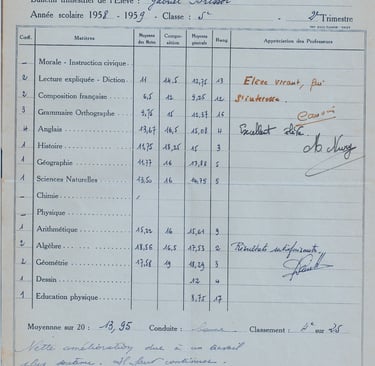 Bulletin trimestriel de l'Élève :
Année scolaire 1958 - 1959 - Classe : 5e 2e Trimestre
Coef. Matières Moyenne des Notes Composition Moyenne générale Rang Appréciation des Professeurs
— Morale - Instruction civique
2 Lecture expliquée - Diction 11 14,5 12,75 13 Élève vivant, qui
2 Composition française 6,5 12 9,25 12 s'intéresse.
3 Grammaire Orthographe 9,75 15 12,37 16
4 Anglais 13,67 16,5 15,08 4 Excellent élève.
1 Histoire 11,75 18,25 15 3
1 Géographie 11,77 16 13,88 5
1 Sciences Naturelles 13,50 16 14,75 5
— Chimie
— Physique
1 Arithmétique 15,22 16 15,61 9
2 Algèbre 18,56 16,5 17,53 2 Résultats satisfaisants.
2 Géométrie 17,58 19 18,29 3
1 Dessin 12 4
1 Education physique 8,75 17
Moyenne sur 20 : 13,95 Conduite : Bonne Classement : 4e sur 25
Nette amélioration due à un travail
plus soutenu. Il faut continuer.